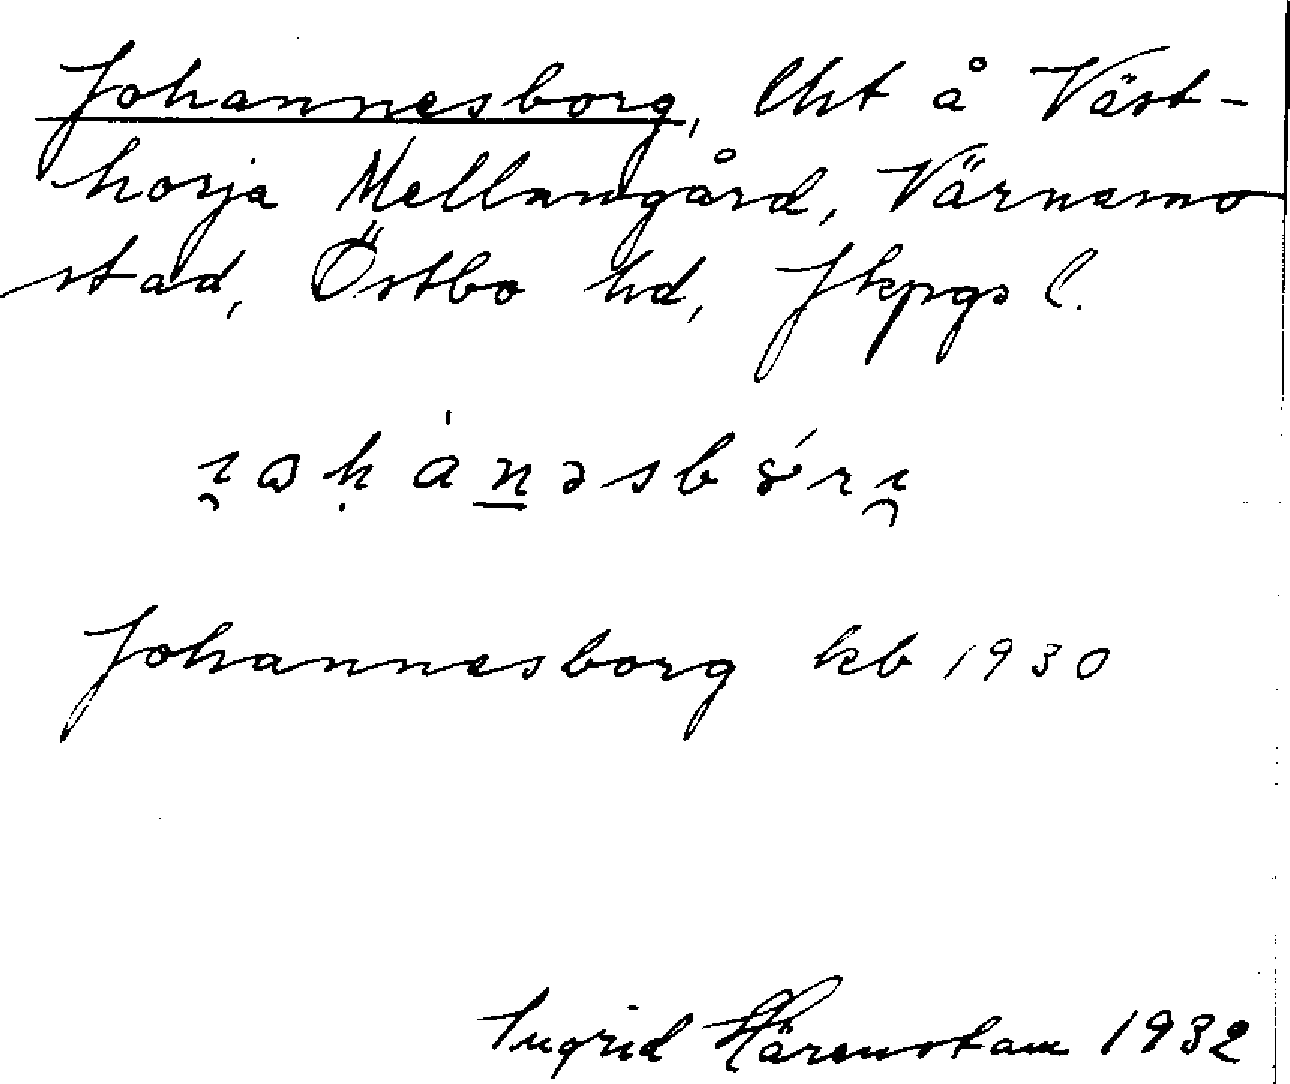 Johannesborg, lht å Väst-
horja Mellangård, Värnamo
stad, Östbo hd, Jkpgs l.
Johannesborg kb 1930
Ingrid Härenstam 1932